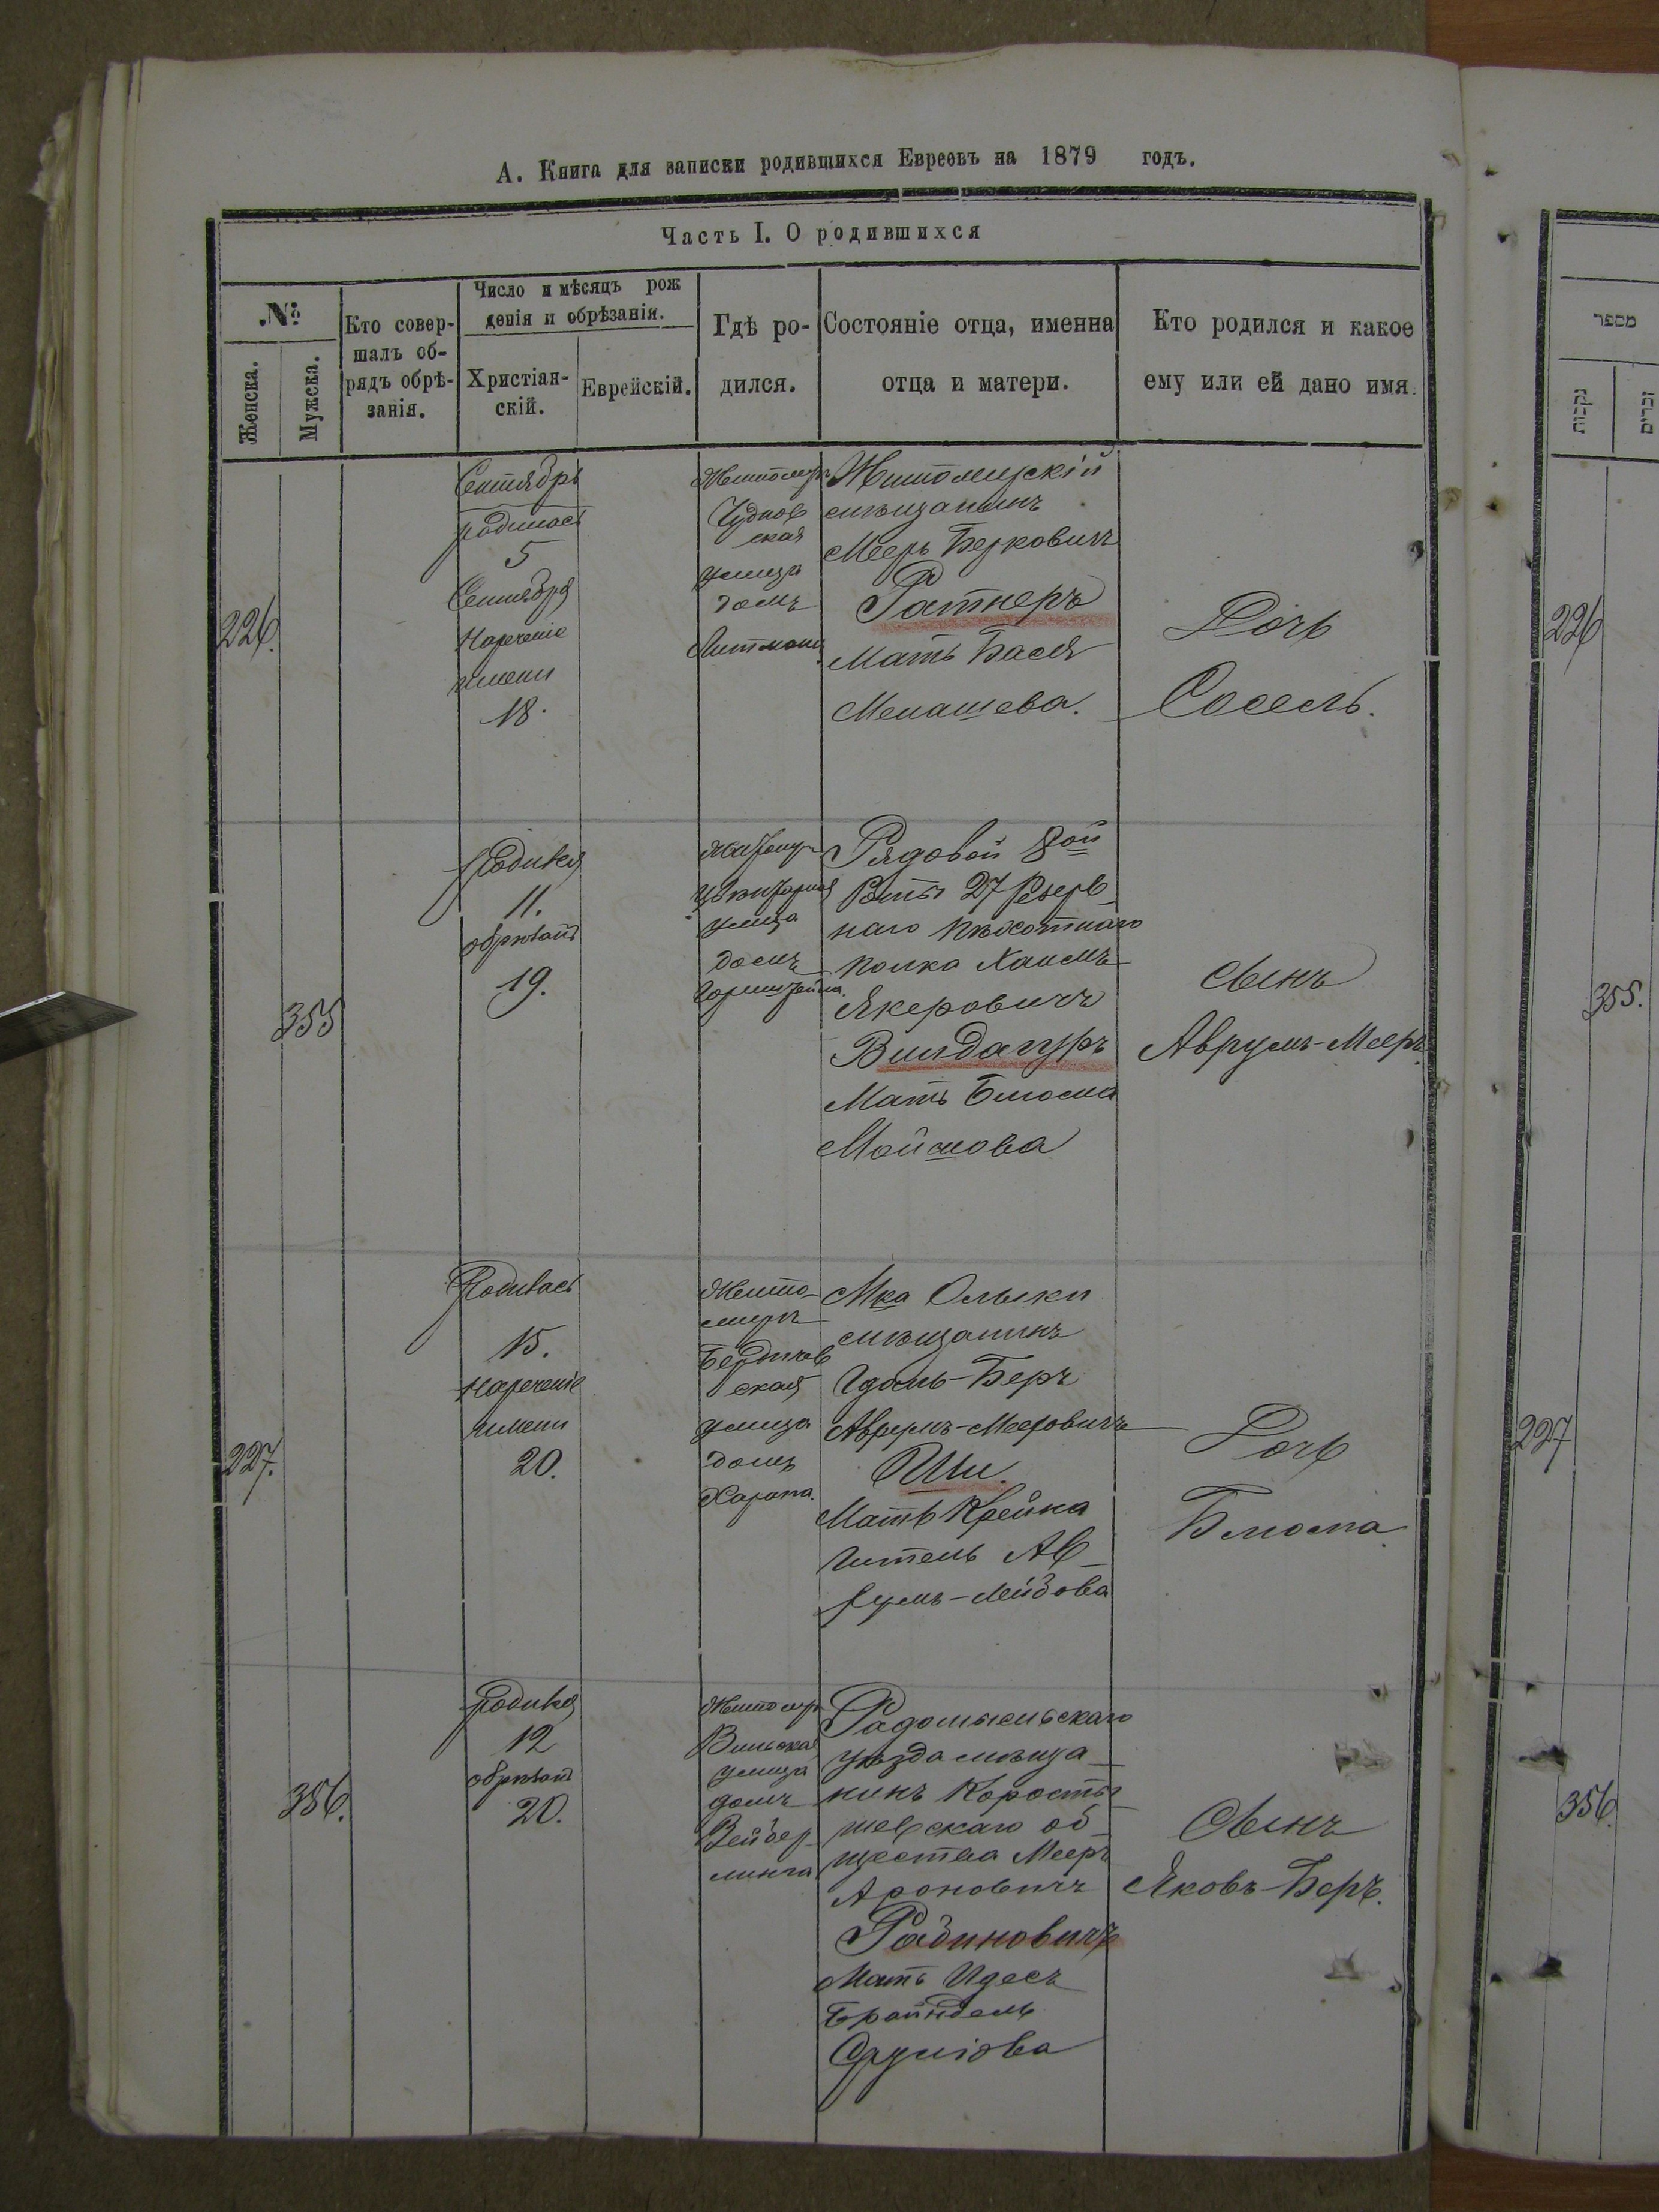 А. Книга для записки родившихся Евреевъ на 1879 годъ.
Часть I. О родившихся
№
Женска.
Мужска.
Кто совер-
шалъ об-
рядъ обрѣ-
занія.
Число и мѣсяцъ рож
денія и обрѣзанія.
Христіан-
скій.
Еврейскій.
Гдѣ ро-
дился.
Состояніе отца, именна
отца и матери.
Кто родился и какое
ему или ей дано имя.
226.
Сентябрь
родилась
5
Сентября
Наречение
имени
18.
Житомиръ
Чуднов
ская
улица
домъ
Житомирскій
мѣщанинъ
Мееръ Берковичъ
Ратнеръ
Мать Бася
Менашева.
Дочь
Сосель.
355
Родился
11.
обрѣзанъ
19.
улица
домъ
Рядовой 8ой
Роты 27 Резерв
наго пѣхотнаго
полка Хаимъ
Якеровичъ
Виндагуръ
Мать Блюма
Мойшова
Сынъ
Аврумъ-Мееръ.
227.
Родилась
15.
Наречение
имени
20.
Жито-
миръ
Бердичев
ская
улица
домъ
Мка Олыки
мѣщанинъ
Идель-Беръ
Аврумъ-Мееровичъ
Мать Крейна
Гитель Ав-
румъ-Лейзова
Дочь
Блюма.
356.
Родился
12
обрѣзанъ
20.
Житомиръ
Вильская
улица
домъ
Радомысльскаго
уѣзда мѣща-
нинъ Коросты-
шевскаго об-
щества Мееръ
Ароновичъ
Рабиновичъ
Мать Идесъ
Брайндель
Срулiова
Сынъ
Яковъ-Беръ.
מספר
נקבות
זכרים
226
355.
227
356.